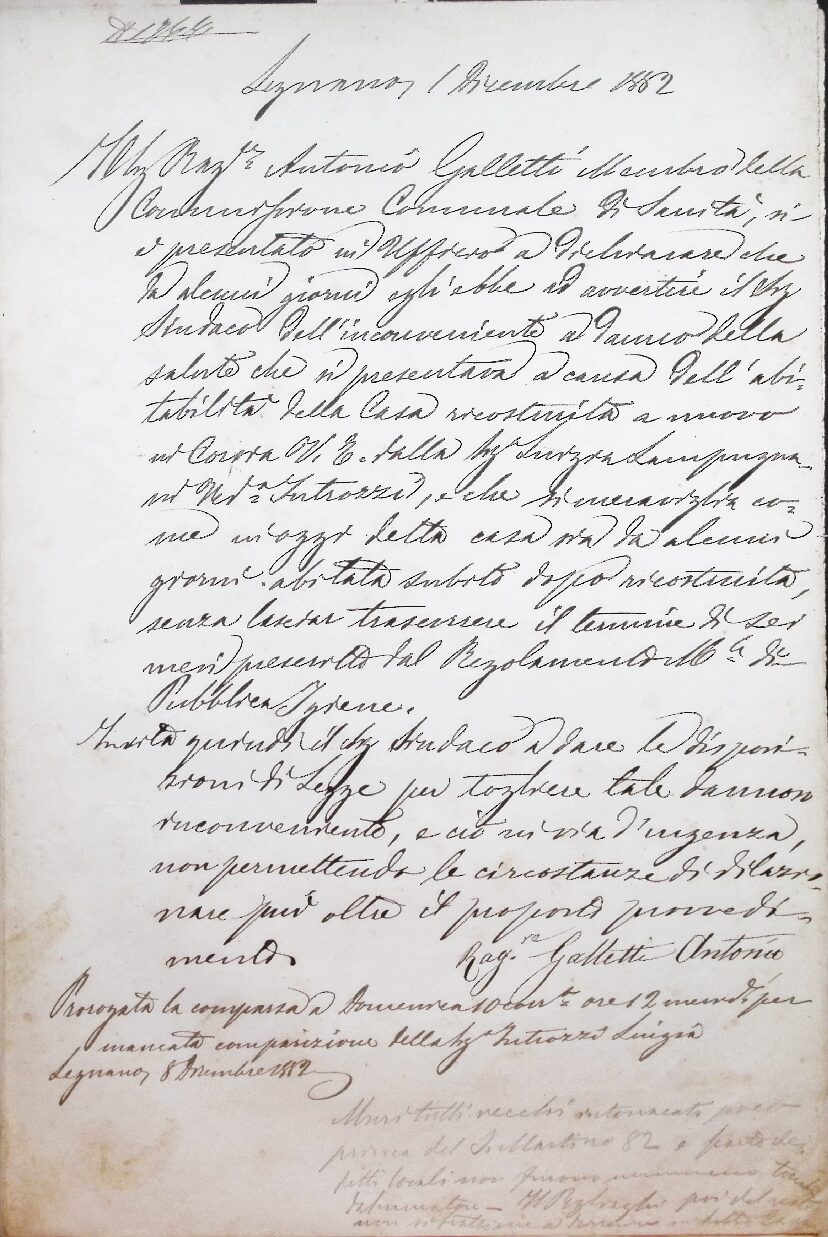 Legnano, 1 Dicembre 1882
Il Sig Rag.re Antonio Galletti Membro della
Commissione Comunale di Sanità, si
è presentato in Ufficio a dichiarare che
da alcuni giorni egli ebbe ad avvertire il Sig
Sindaco dell'inconveniente a danno della
salute che si presentava a causa dell'abi-
tabilità della Casa ricostruita a nuovo
in Corso V. E. dalla Sig.a Luigia Lampugna-
ni Ved.a Introzzi, e che si meraviglia co-
me in oggi detta casa sia da alcuni
giorni abitata subito dopo ricostruita,
senza lasciar trascorrere il termine di sei
mesi prescritto dal Regolamento M.le di
Pubblica Igiene.
Invita quindi il Sig Sindaco a dare le disposi-
zioni di Legge per togliere tale dannoso
inconveniente, e ciò in via d'urgenza,
non permettendo le circostanze di dilazio-
nare più oltre il proposto provvedi-
mento.
Rag.re Galletti Antonio
Prorogata la comparsa a Domenica 10 corr.te ore 12 merid. per
mancata comparizione della Sig.a Introzzi Luigia
Legnano, 8 Dicembre 1882
Muri tutti vecchi intonacati
prima del S. Martino 82 e
detti locali non furono nemmeno
dal muratore - Il poi del resto
non si in detta Casa